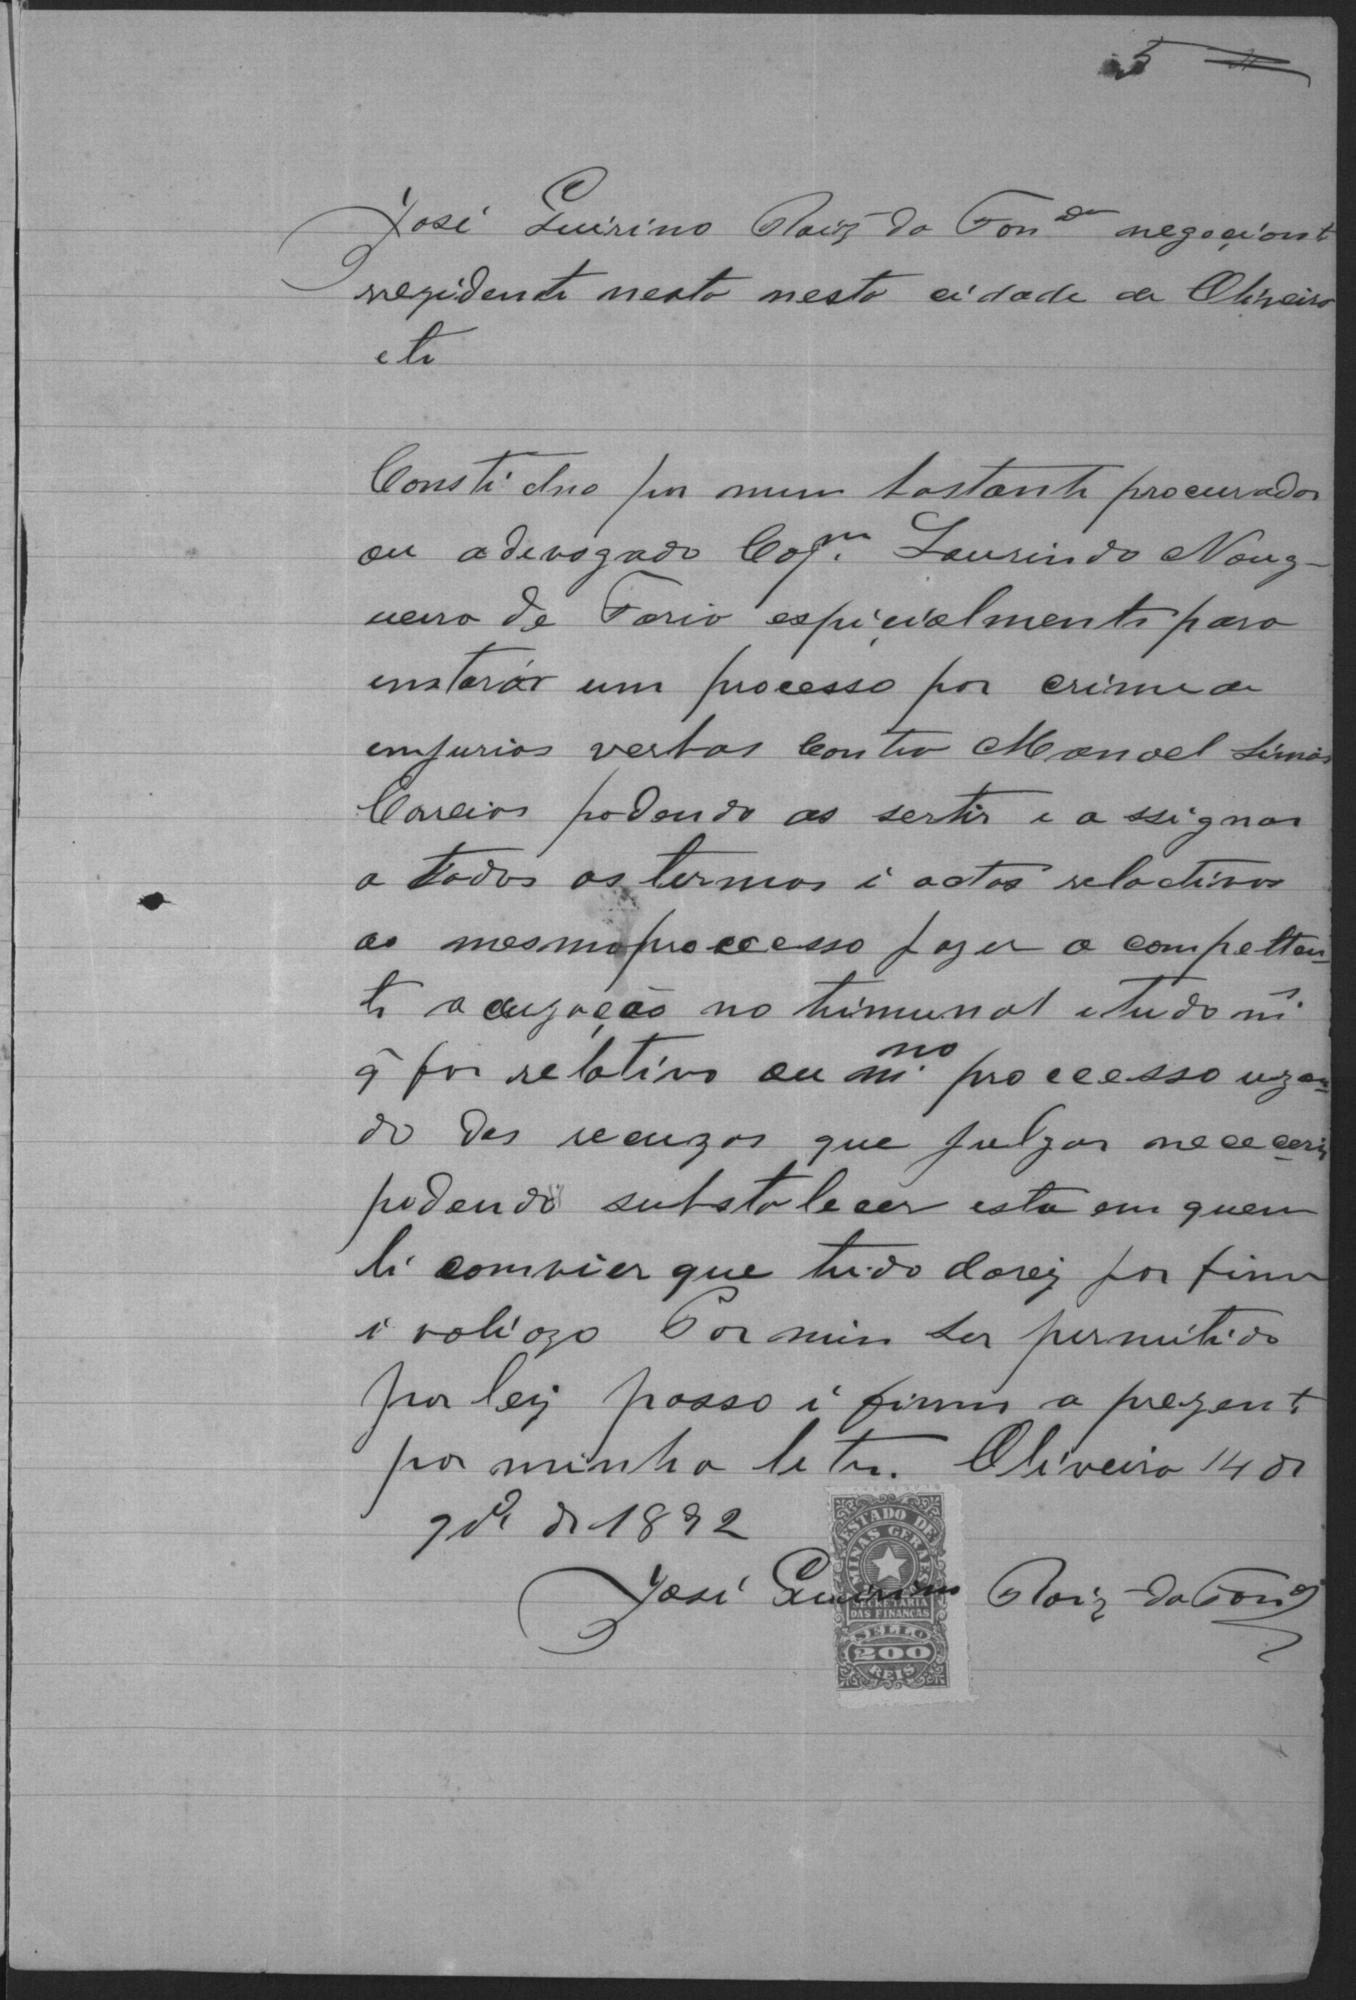 5
José Guirino Roiz da Fon.ca negociant
rezidente nesta nesta cidade de Oliveira
etc
Constiduo por meu bastante procurador
ou adevogado Cap.m Laurindo Noug-
ueira de Faria espicialmente para
enstarár um processo por crime de
emjurias verbas contra Manoel Simois
Correios podendo as sertir e assignar
a todos os termos i actos relactivos
ao mesmo proccesso fazer a compettan-
te acuzação no trimunal e tudo m.
q̃ for relativo au no m.mo proccesso uzan-
do dos recuzos que julgar nececeri
podendo substalecer esta em quem
li comvier que tudo darej por firme
i valiozo Por mim ser permitido
por lej passo i firmo a prezent
por minha letra. Oliveira 14 de
9br.o de 1892
José Guirino Roiz da Fon.ca
ESTADO DE
MINAS GERAES
SECRETARIA
DAS FINANÇAS
SELLO
200
REIS